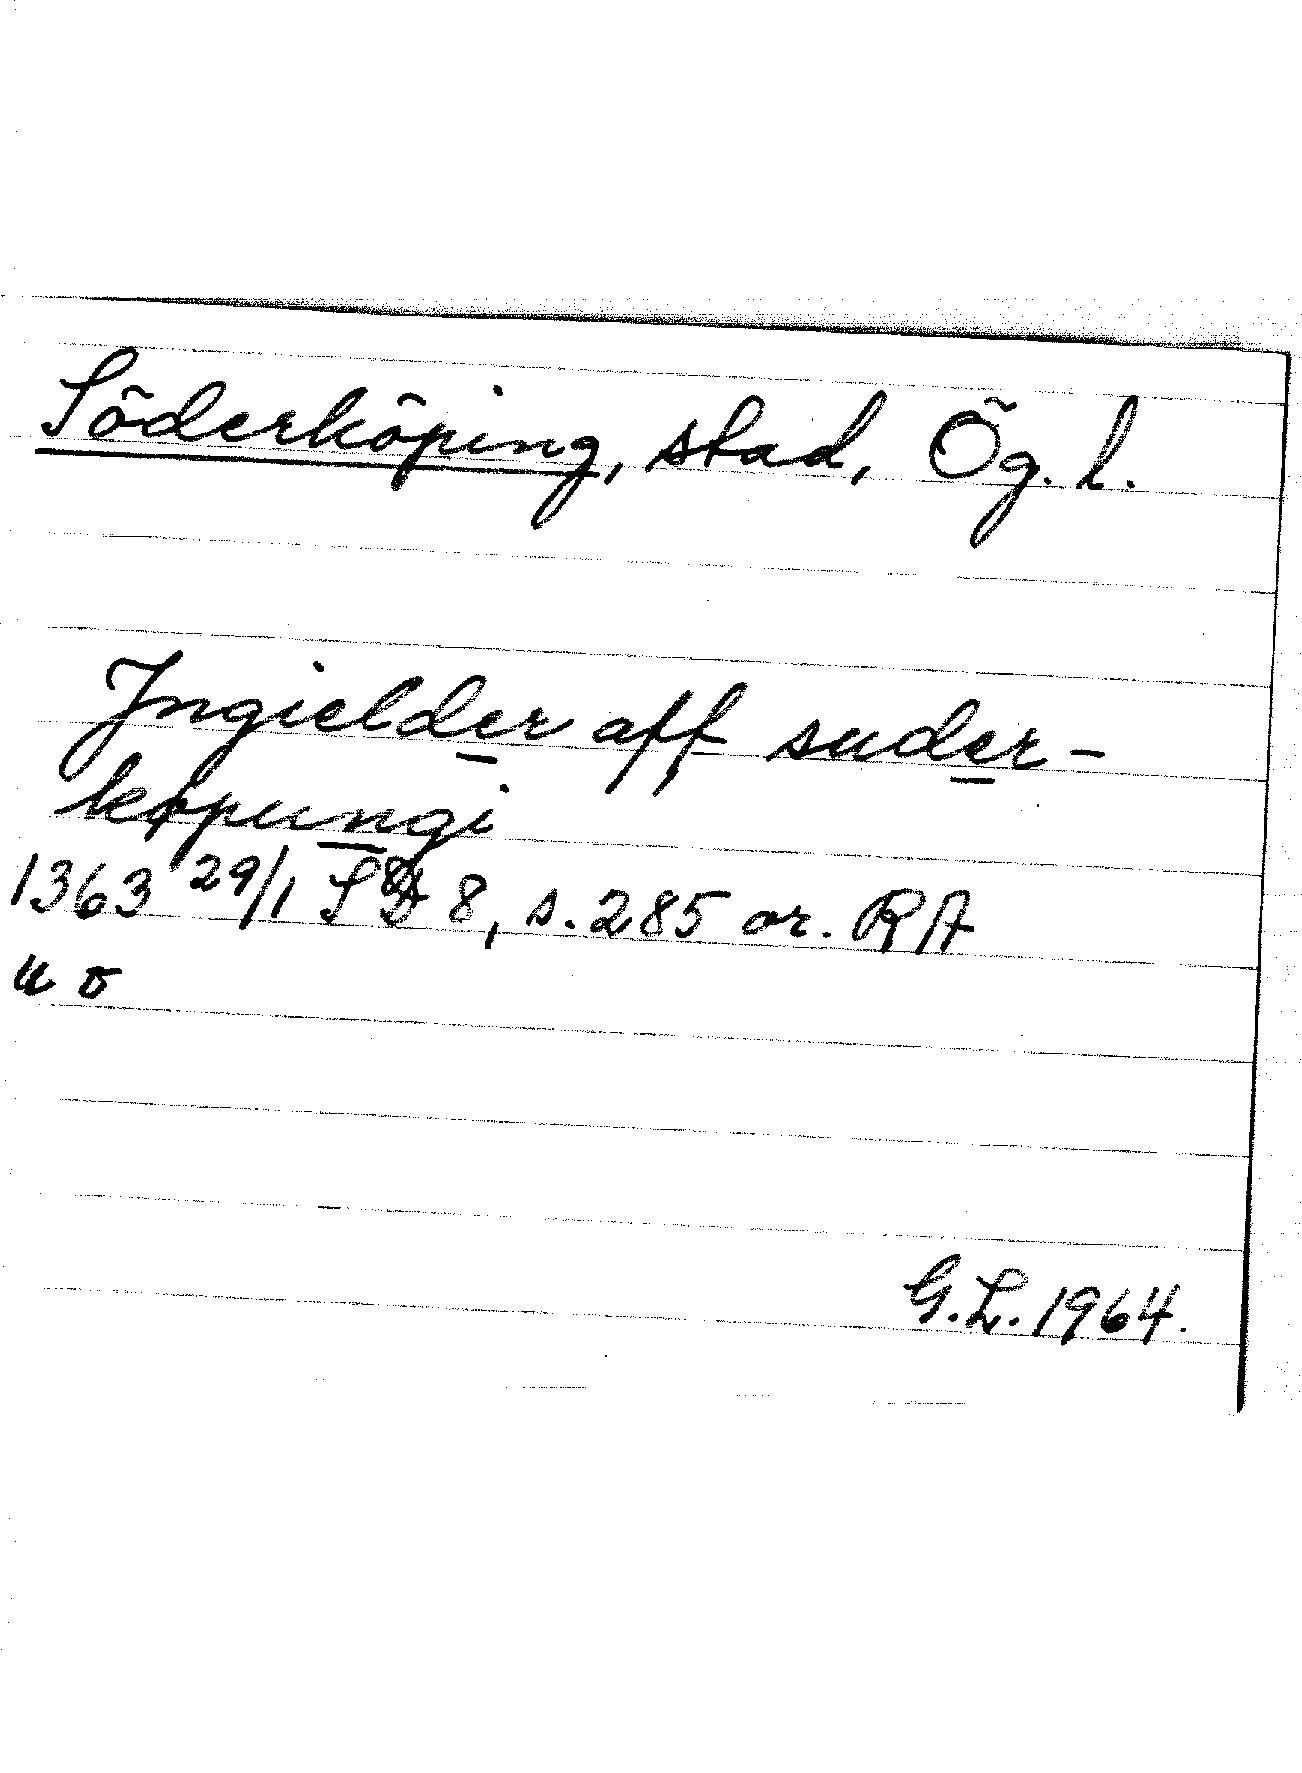 Söderköping, stad, Ög. l.
Jngielder aff suder-
køpungi
1363 29/1 SD 8, s. 285 or. RA
u o
G.L. 1964.